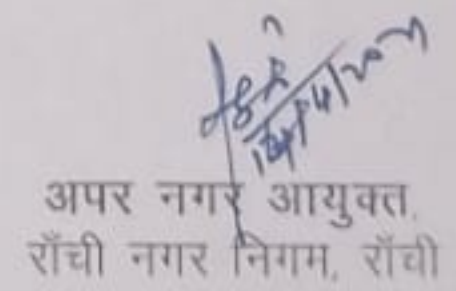 अपर नगर आयुक्त,
राँची नगर निगम, राँची